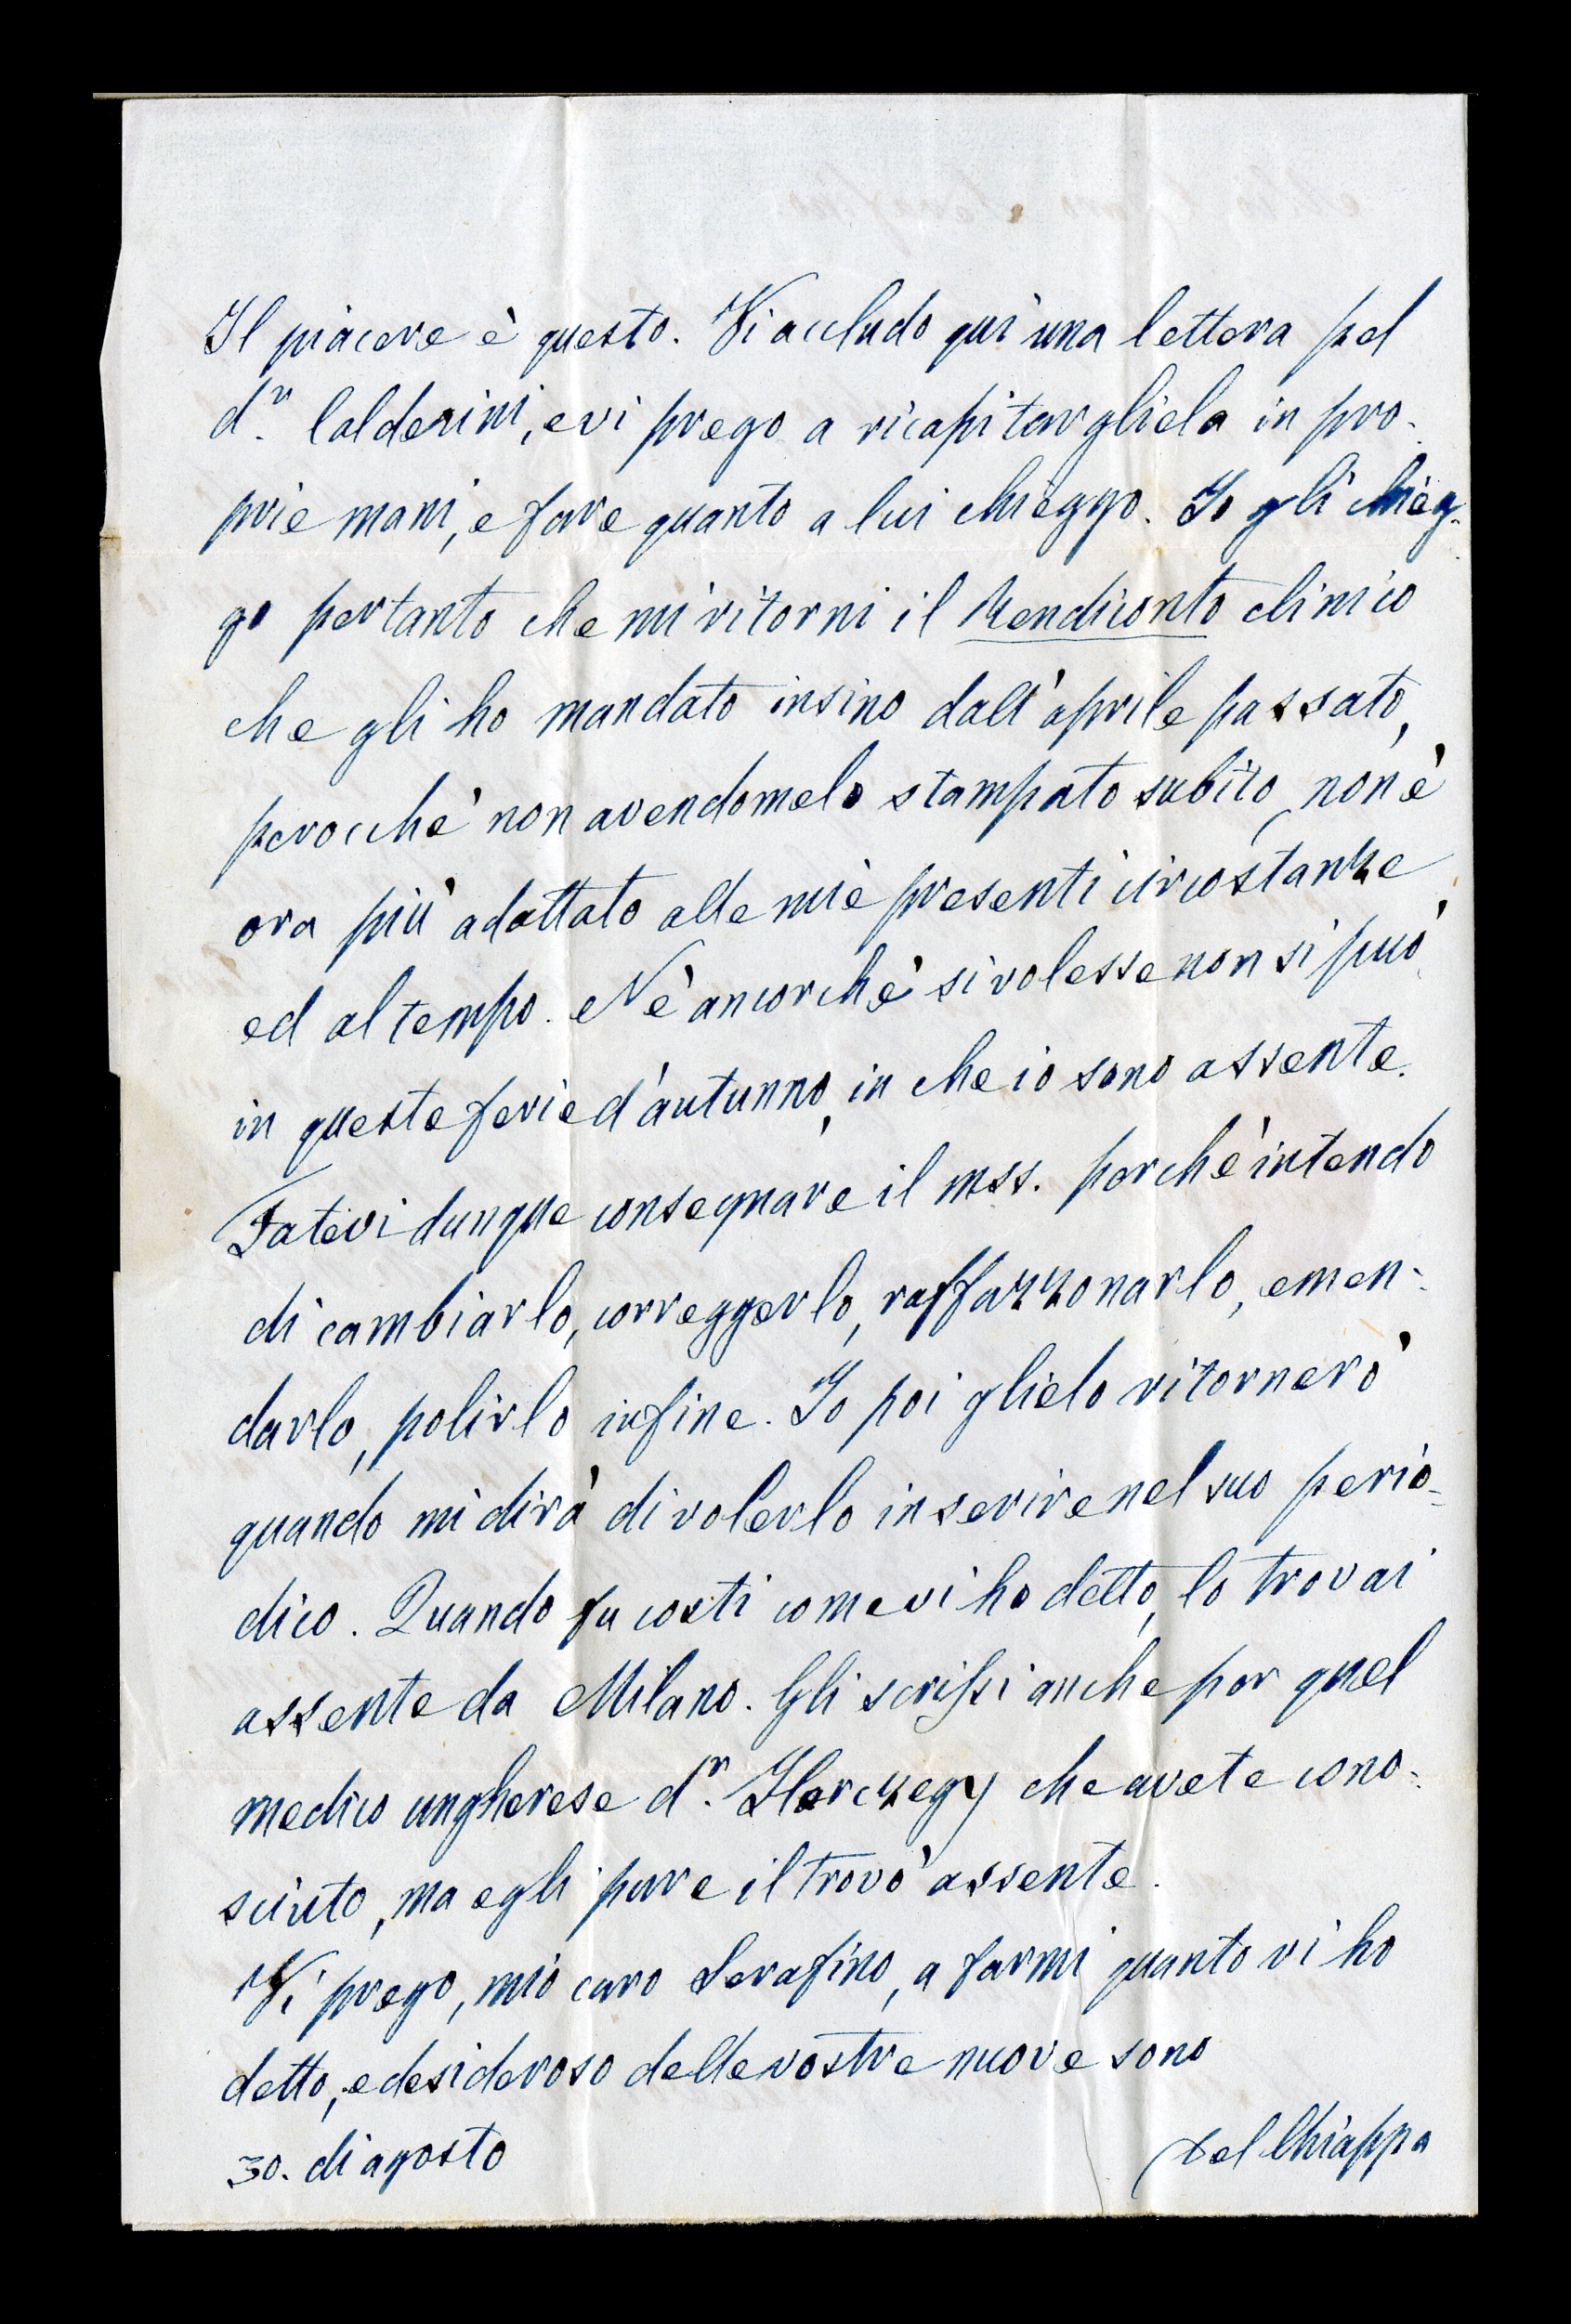 Il piacere è questo. Vi accludo qui una lettera pel
dr. Calderini, e vi prego a ricapitargliela in pro-
prie mani, e fare quanto a lui chieggo. Io gli chieg-
go pertanto che mi ritorni il Rendiconto clinico
che gli ho mandato insino dall'aprile passato,
perocchè non avendomelo stampato subito, non è
ora più adattato alle mie presenti circostanze
ed al tempo. Nè ancorchè si volesse non si può,
in queste ferie d'autunno, in che io sono assente.
Fatevi dunque consegnare il mss. perchè intendo
di cambiarlo, correggerlo, raffazzonarlo, emen-
darlo, polirlo infine. Io poi glielo ritornerò
quando mi dirà di volerlo inserire nel suo perio-
dico. Quando fu costi come vi ho detto, lo trovai
assente da Milano. Gli scrissi anche per quel
medico ungherese dr. Herczegy che avete cono-
sciuto, ma egli pure il trovò assente.
Vi prego, mio caro Serafino, a farmi quanto vi ho
detto, e desideroso delle vostre nuove sono
30. di agosto
del Chiappa